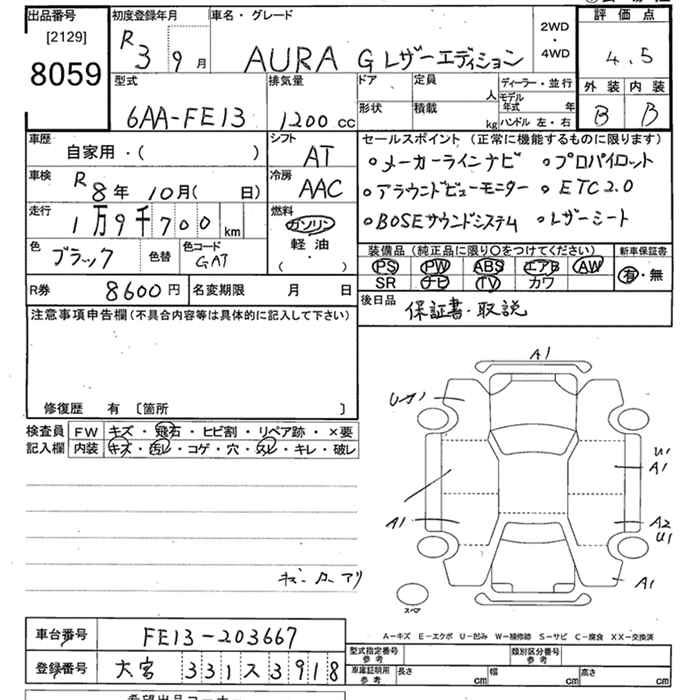 出品番号
[2129]
8059
初度登録年月
R3 9月
車名・グレード
AURA G レザーエディション
2WD
・
4WD
評価点
4.5
外装 内装
B B
型式
6AA-FE13
排気量
1200 cc
ドア
定員
人
形状
積載
kg
ディーラー・並行
モデル年式 年
ハンドル 左・右
車歴
自家用・( )
シフト
AT
車検
R8年 10月( 日)
冷房
AAC
走行
1万9千700km
燃料
ガソリン
軽油
( ・ )
色
ブラック
色替
色コード
GAT
セールスポイント (正常に機能するものに限ります)
○メーカーラインナビ ○プロパイロット
○アラウンドビューモニター ○ETC2.0
○BOSEサウンドシステム ○レザーシート
装備品(純正品に限り○をつけてください)
PS PW ABS エアB AW
SR ナビ TV カワ
新車保証書
有・無
R券
8600円
名変期限 月 日
後日品
保証書・取説
注意事項申告欄(不具合内容等は具体的に記入して下さい)
修復歴 有 〔箇所 〕
検査員
記入欄
FW キズ・飛石・ヒビ割・リペア跡・×要
内装 キズ・汚レ・コゲ・穴・スレ・キレ・破レ
A1
U1
A1
A1
A2
U1
A1
スペア
A―キズ E―エクボ U―凹み W―補修跡 S―サビ C―腐食 XX―交換済
車台番号
FE13-203667
登録番号
大宮 331ス3918
型式指定番号
参考
類別区分番号
参考
車庫証明用
参考
長さ cm
幅 cm
高さ cm